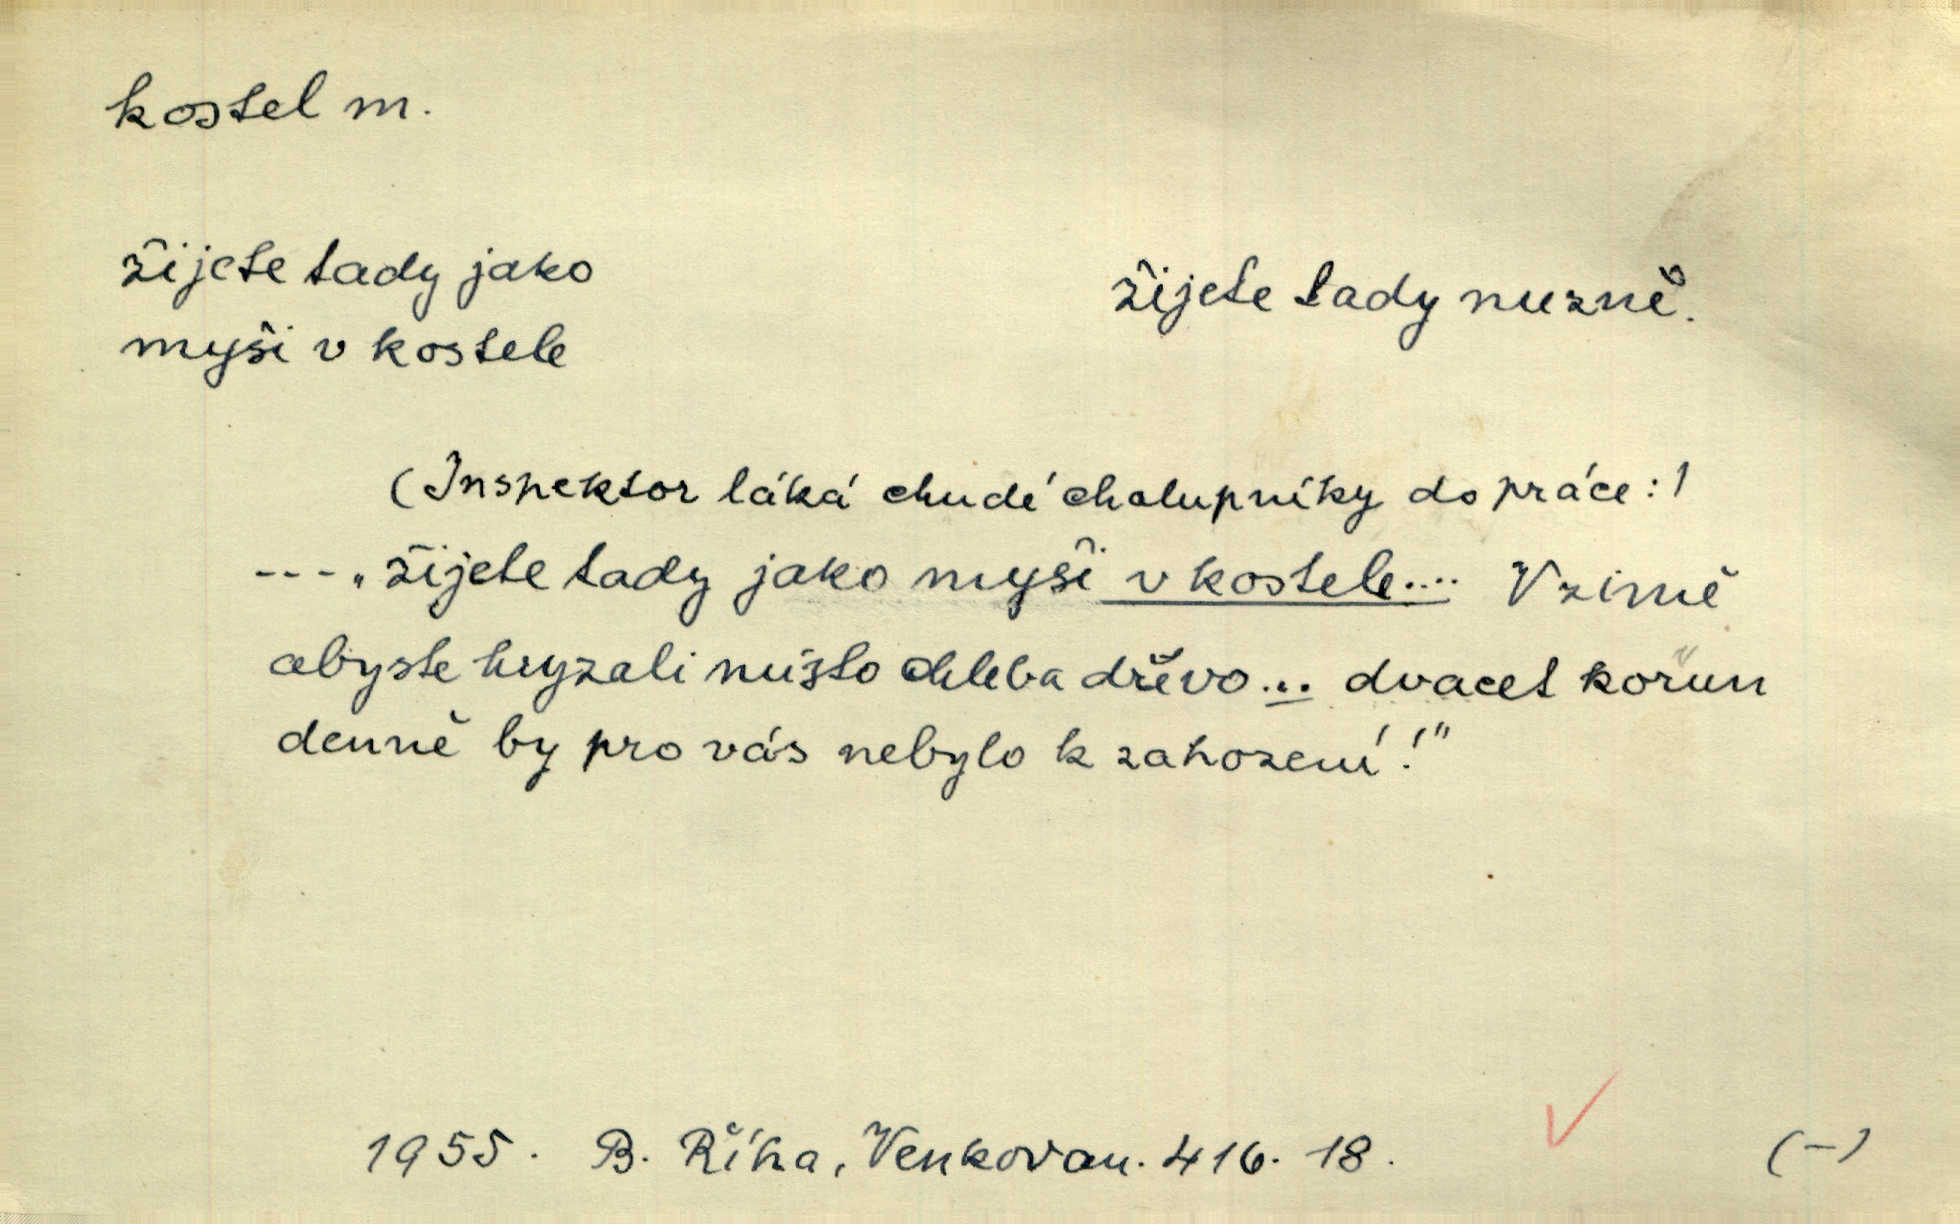 kostel m.
žijete tady jako
myši v kostele
žijete tady nuzně.
(Inspektor láká chudé chalupníky do práce:)
---„žijete tady jako myši v kostele.... V zimě
abyste hryzali místo chleba dřevo... dvacet korun
denně by pro vás nebylo k zahození!"
1955. B. Říha, Venkovan. 416. 18.
(-)